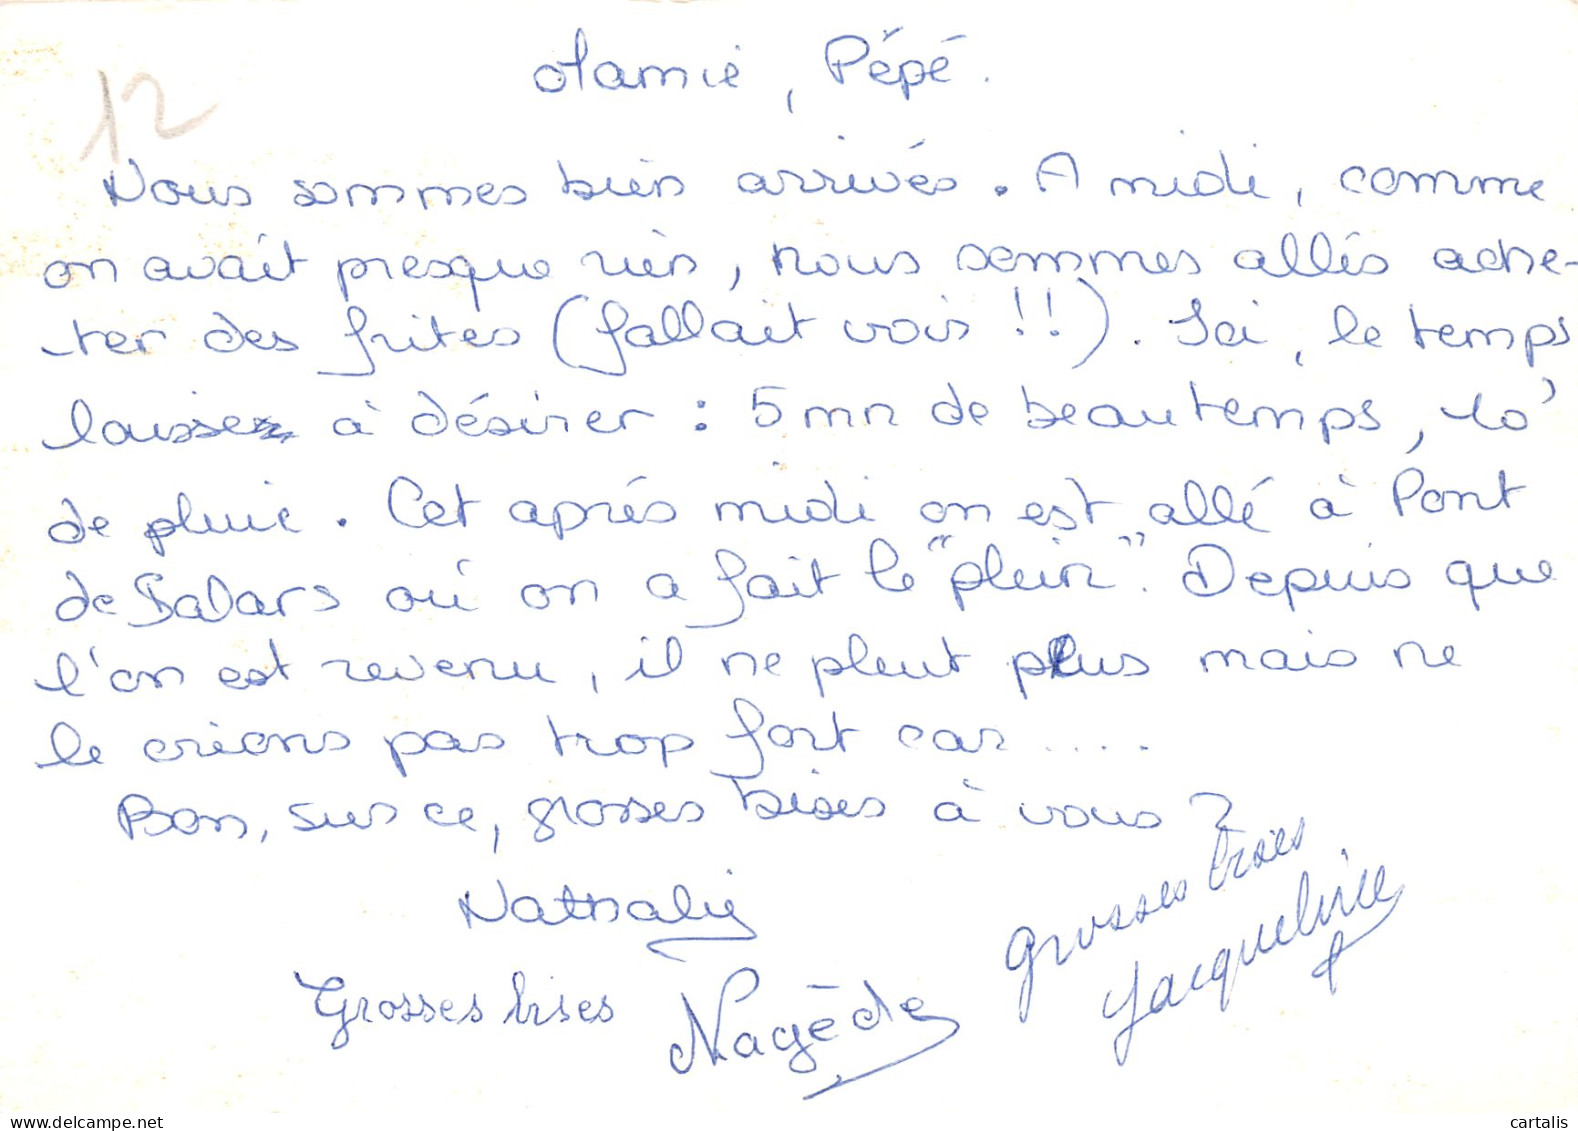 12
Mamie, Pépé.
Nous sommes bien arrivés. A midi, comme
on avait presque rien, nous sommes allés ache-
ter des frites (fallait voir !!). Ici, le temps
laisse à désirer : 5 mn de beau temps, 10'
de pluie. Cet après midi on est allé à Pont
de Salars où on a fait le "plein". Depuis que
l'on est revenu, il ne pleut plus mais ne
le crions pas trop fort car .....
Bon, sur ce, grosses bises à vous 2
Nathalie
Grosses bises
Jacqueline
Grosses bises Nagède
delcampe.net
cartalis